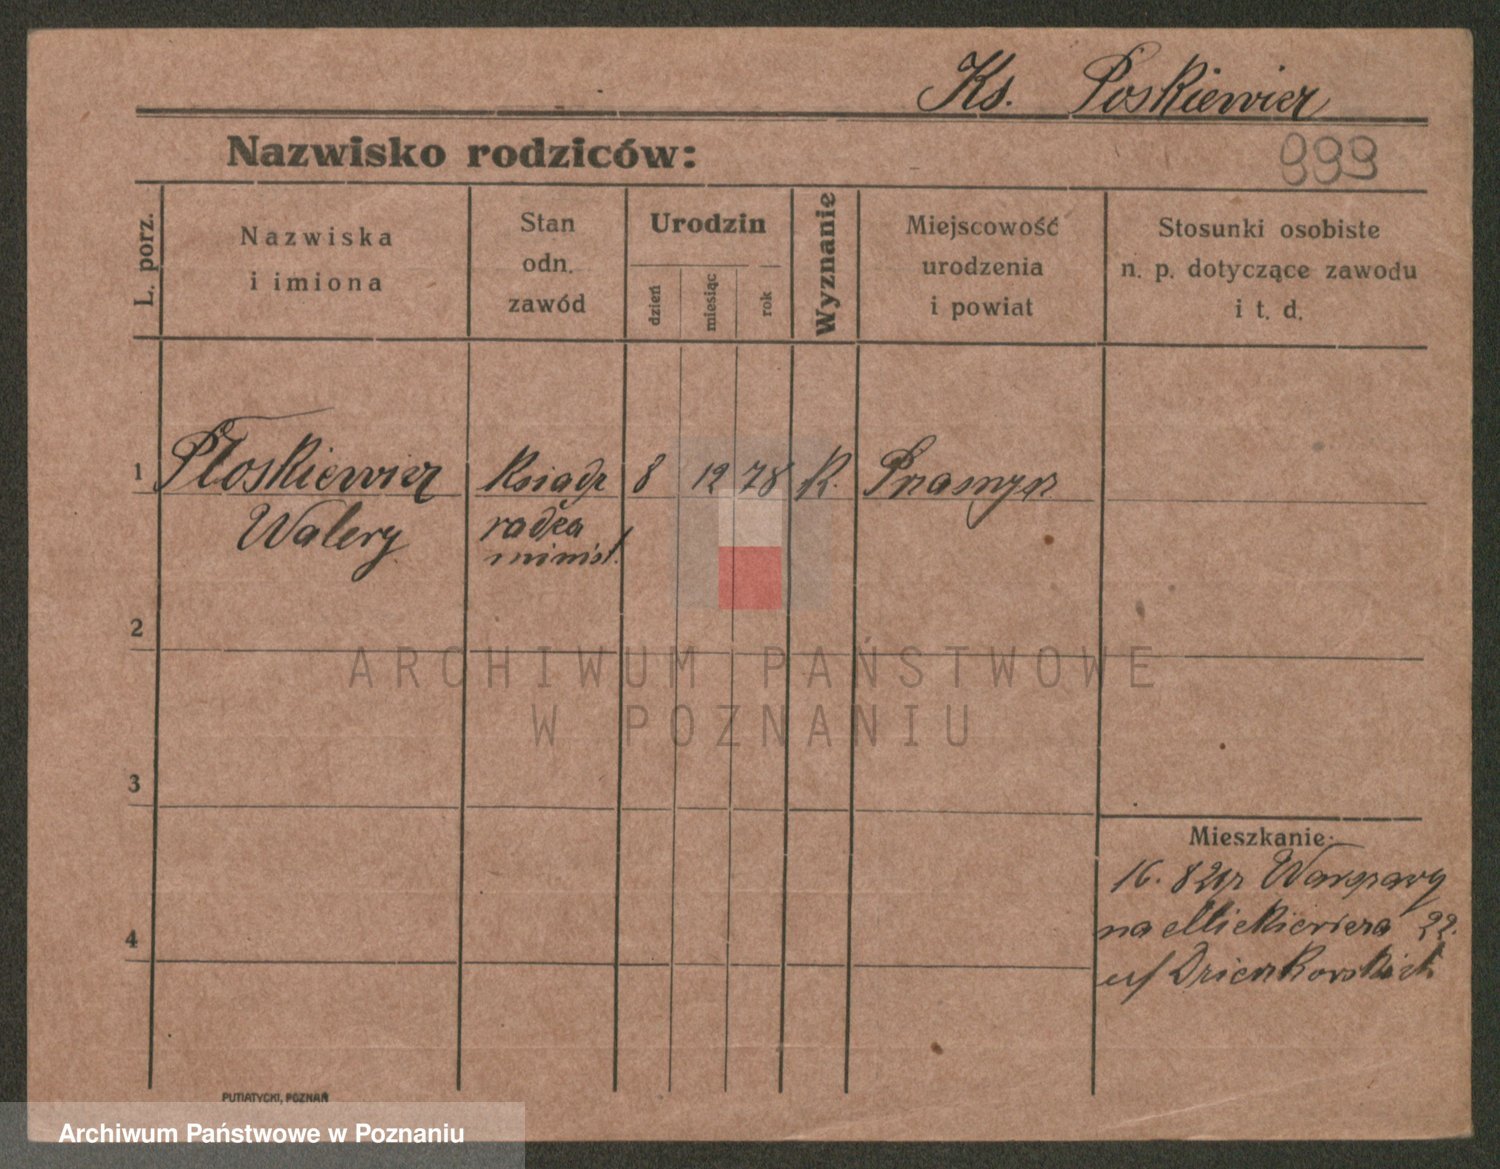 Ks. Poskiewicz
Nazwisko rodziców:
999
L. porz.
Nazwiska
i imiona
Stan
odn.
zawód
Urodzin
dzień
miesiąc
rok
Wyznanie
Miejscowość
urodzenia
i powiat
Stosunki osobiste
n. p. dotyczące zawodu
i t. d.
1 Płoskiewicz Ksiądz 8 12 78 K. Pnasnysz
Walery radca
minist.
2
ARCHIWUM PAŃSTWOWE
W POZNANIU
3
Mieszkanie:
16. 8 29 z Warszawy
4 na Mickiewicza 22.
u/ Dzienkowskich
PUTIATYCKI, POZNAŃ
Archiwum Państwowe w Poznaniu